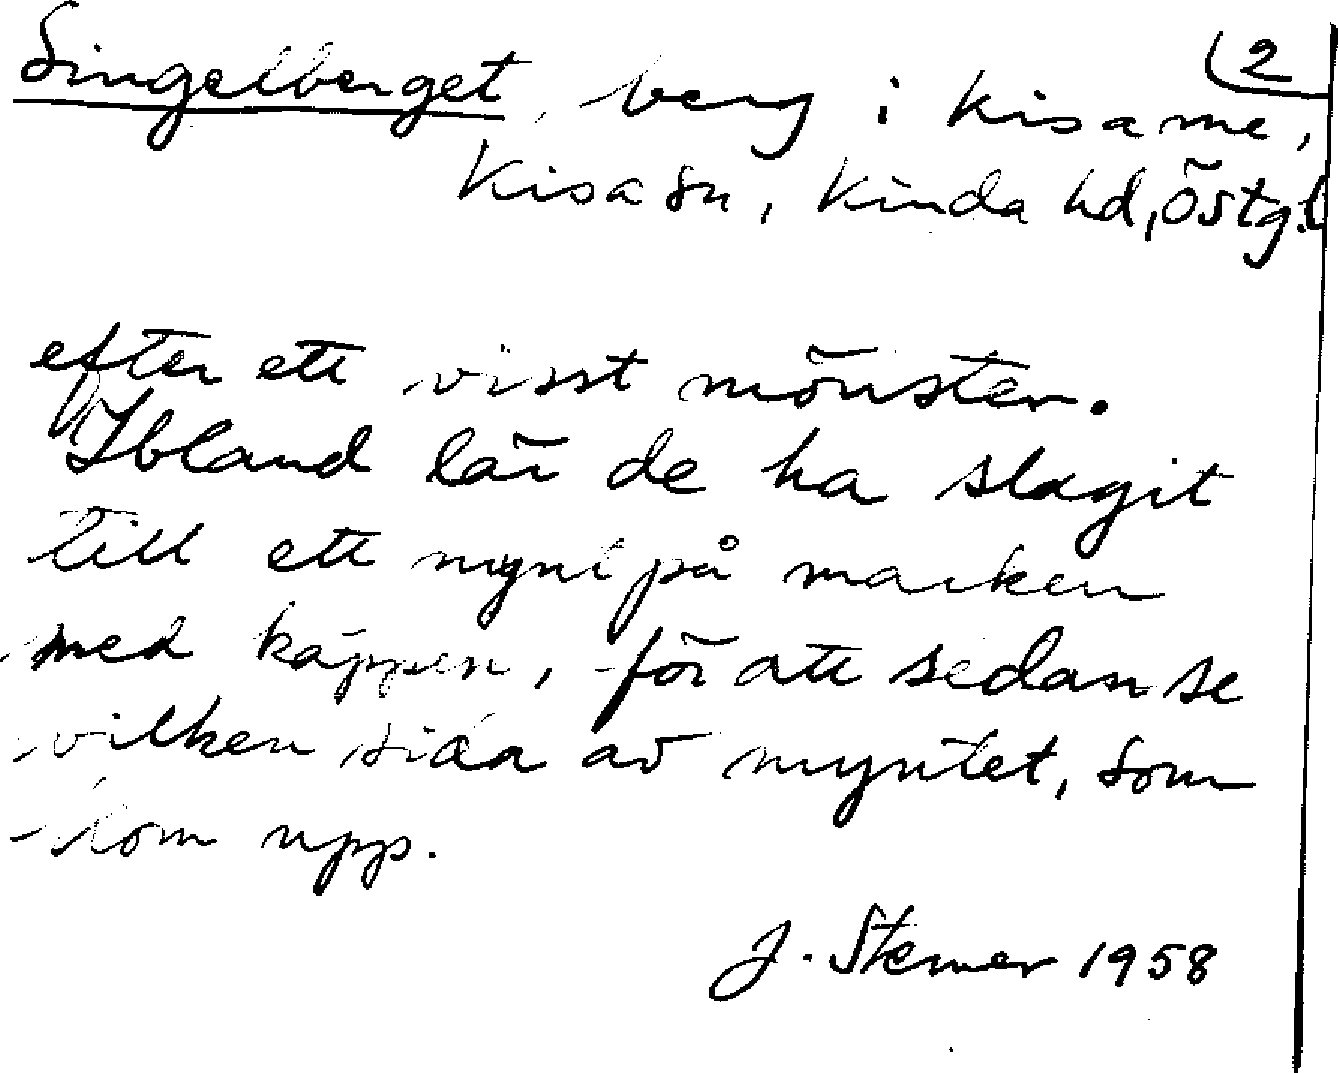 Singelberget, berg i Kisa me, (2
Kisa sn, Kinda hd, Östg.l
efter ett visst mönster.
Ibland lär de ha slagit
till ett mynt på marken
med käppen, för att sedan se
vilken sida av myntet, som
kom upp.
J. Stemer 1958